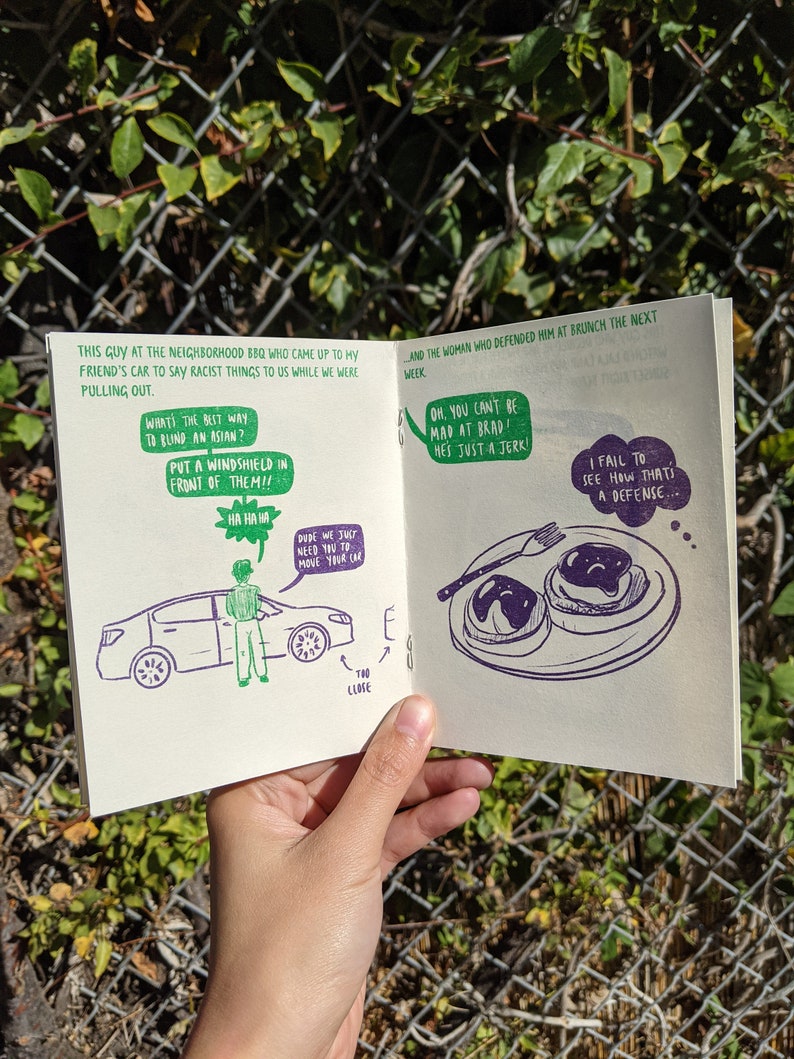 THIS GUY AT THE NEIGHBORHOOD BBQ WHO CAME UP TO MY
FRIEND'S CAR TO SAY RACIST THINGS TO US WHILE WE WERE
PULLING OUT.
WHAT'S THE BEST WAY
TO BLIND AN ASIAN?
PUT A WINDSHIELD IN
FRONT OF THEM!!
HA HA HA
DUDE WE JUST
NEED YOU TO
MOVE YOUR CAR
TOO
CLOSE
...AND THE WOMAN WHO DEFENDED HIM AT BRUNCH THE NEXT
WEEK.
OH, YOU CAN'T BE
MAD AT BRAD!
HE'S JUST A JERK!
I FAIL TO
SEE HOW THAT'S
A DEFENSE...